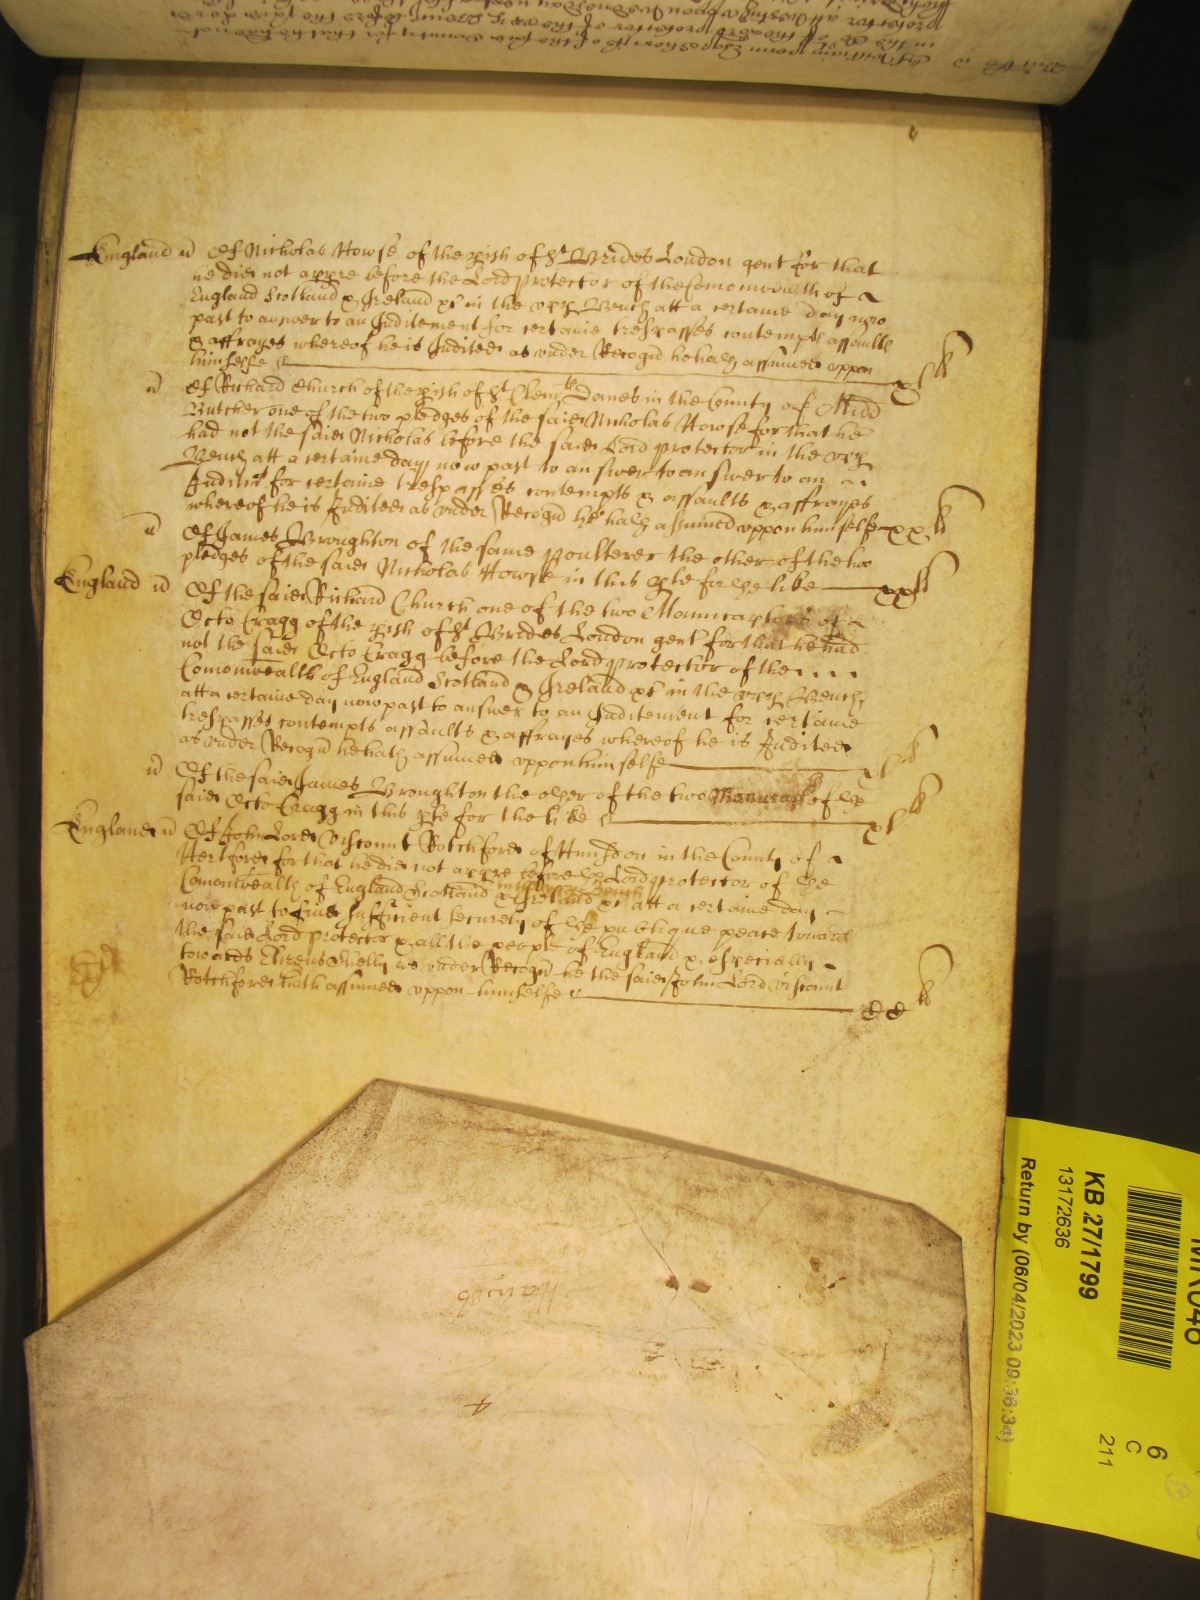 England Of Nicholas Howse of the pish of St Brides London gent for that
he did not appre before the Lord protector of the Comonwealth of
England Scotland & Ireland &c in the upp Bench att a certaine day now
past to answer to an Inditement for certaine trespasses contempts assaults
& affrayes whereof he is Indited as under Recogn he hath assumed uppon
himselfe xl li
Of Richard Church of the pish of St Clemts Danes in the County of Midd
Butcher one of the two pledges of the said Nicholas Howse for that he
had not the said Nicholas before the said Lord protector in the upp
Bench att a certaine day now past to answer to answer to an
Inditmt for certaine trespasses contempts & assaults & affrayes
whereof he is Indited as under Recogn he hath assumed uppon himselfe xx li
Of James Broughton of the same Poulterer the other of the two
pledges of the said Nicholas Howse in this pte for the like xx li
England Of the said Richard Church one of the two Manucaptors of
Octo Cragg of the pish of St Brides London gent for that he had
not the said Octo Cragg before the Lord protector of the
Comonwealth of England Scotland & Ireland &c in the upp Bench
att a certaine day now past to answer to an Inditement for certaine
trespasses contempts assaults & affrayes whereof he is Indited
as under Recogn he hath assumed uppon himselfe xl li
Of the said James Broughton the other of the two Manucapt of the
said Octo Cragg in this pte for the like xl li
England Of John Lord Viscount Rotchford of Hunsdon in the County of
Hertford for that he did not appre before the Lord protector of the
Comonwealth of England Scotland & Ireland &c in the upper Bench att a certaine day
now past to find sufficient securety of the publique peace toward
the said Lord protector & all the people of England & especially
towards Shelly as under Recogn he the said John Lord Viscount
Rotchford hath assumed uppon himselfe CC li
KB 27/1799
13172636
Return by (06/04/2023 09:36:34)
6
C
211